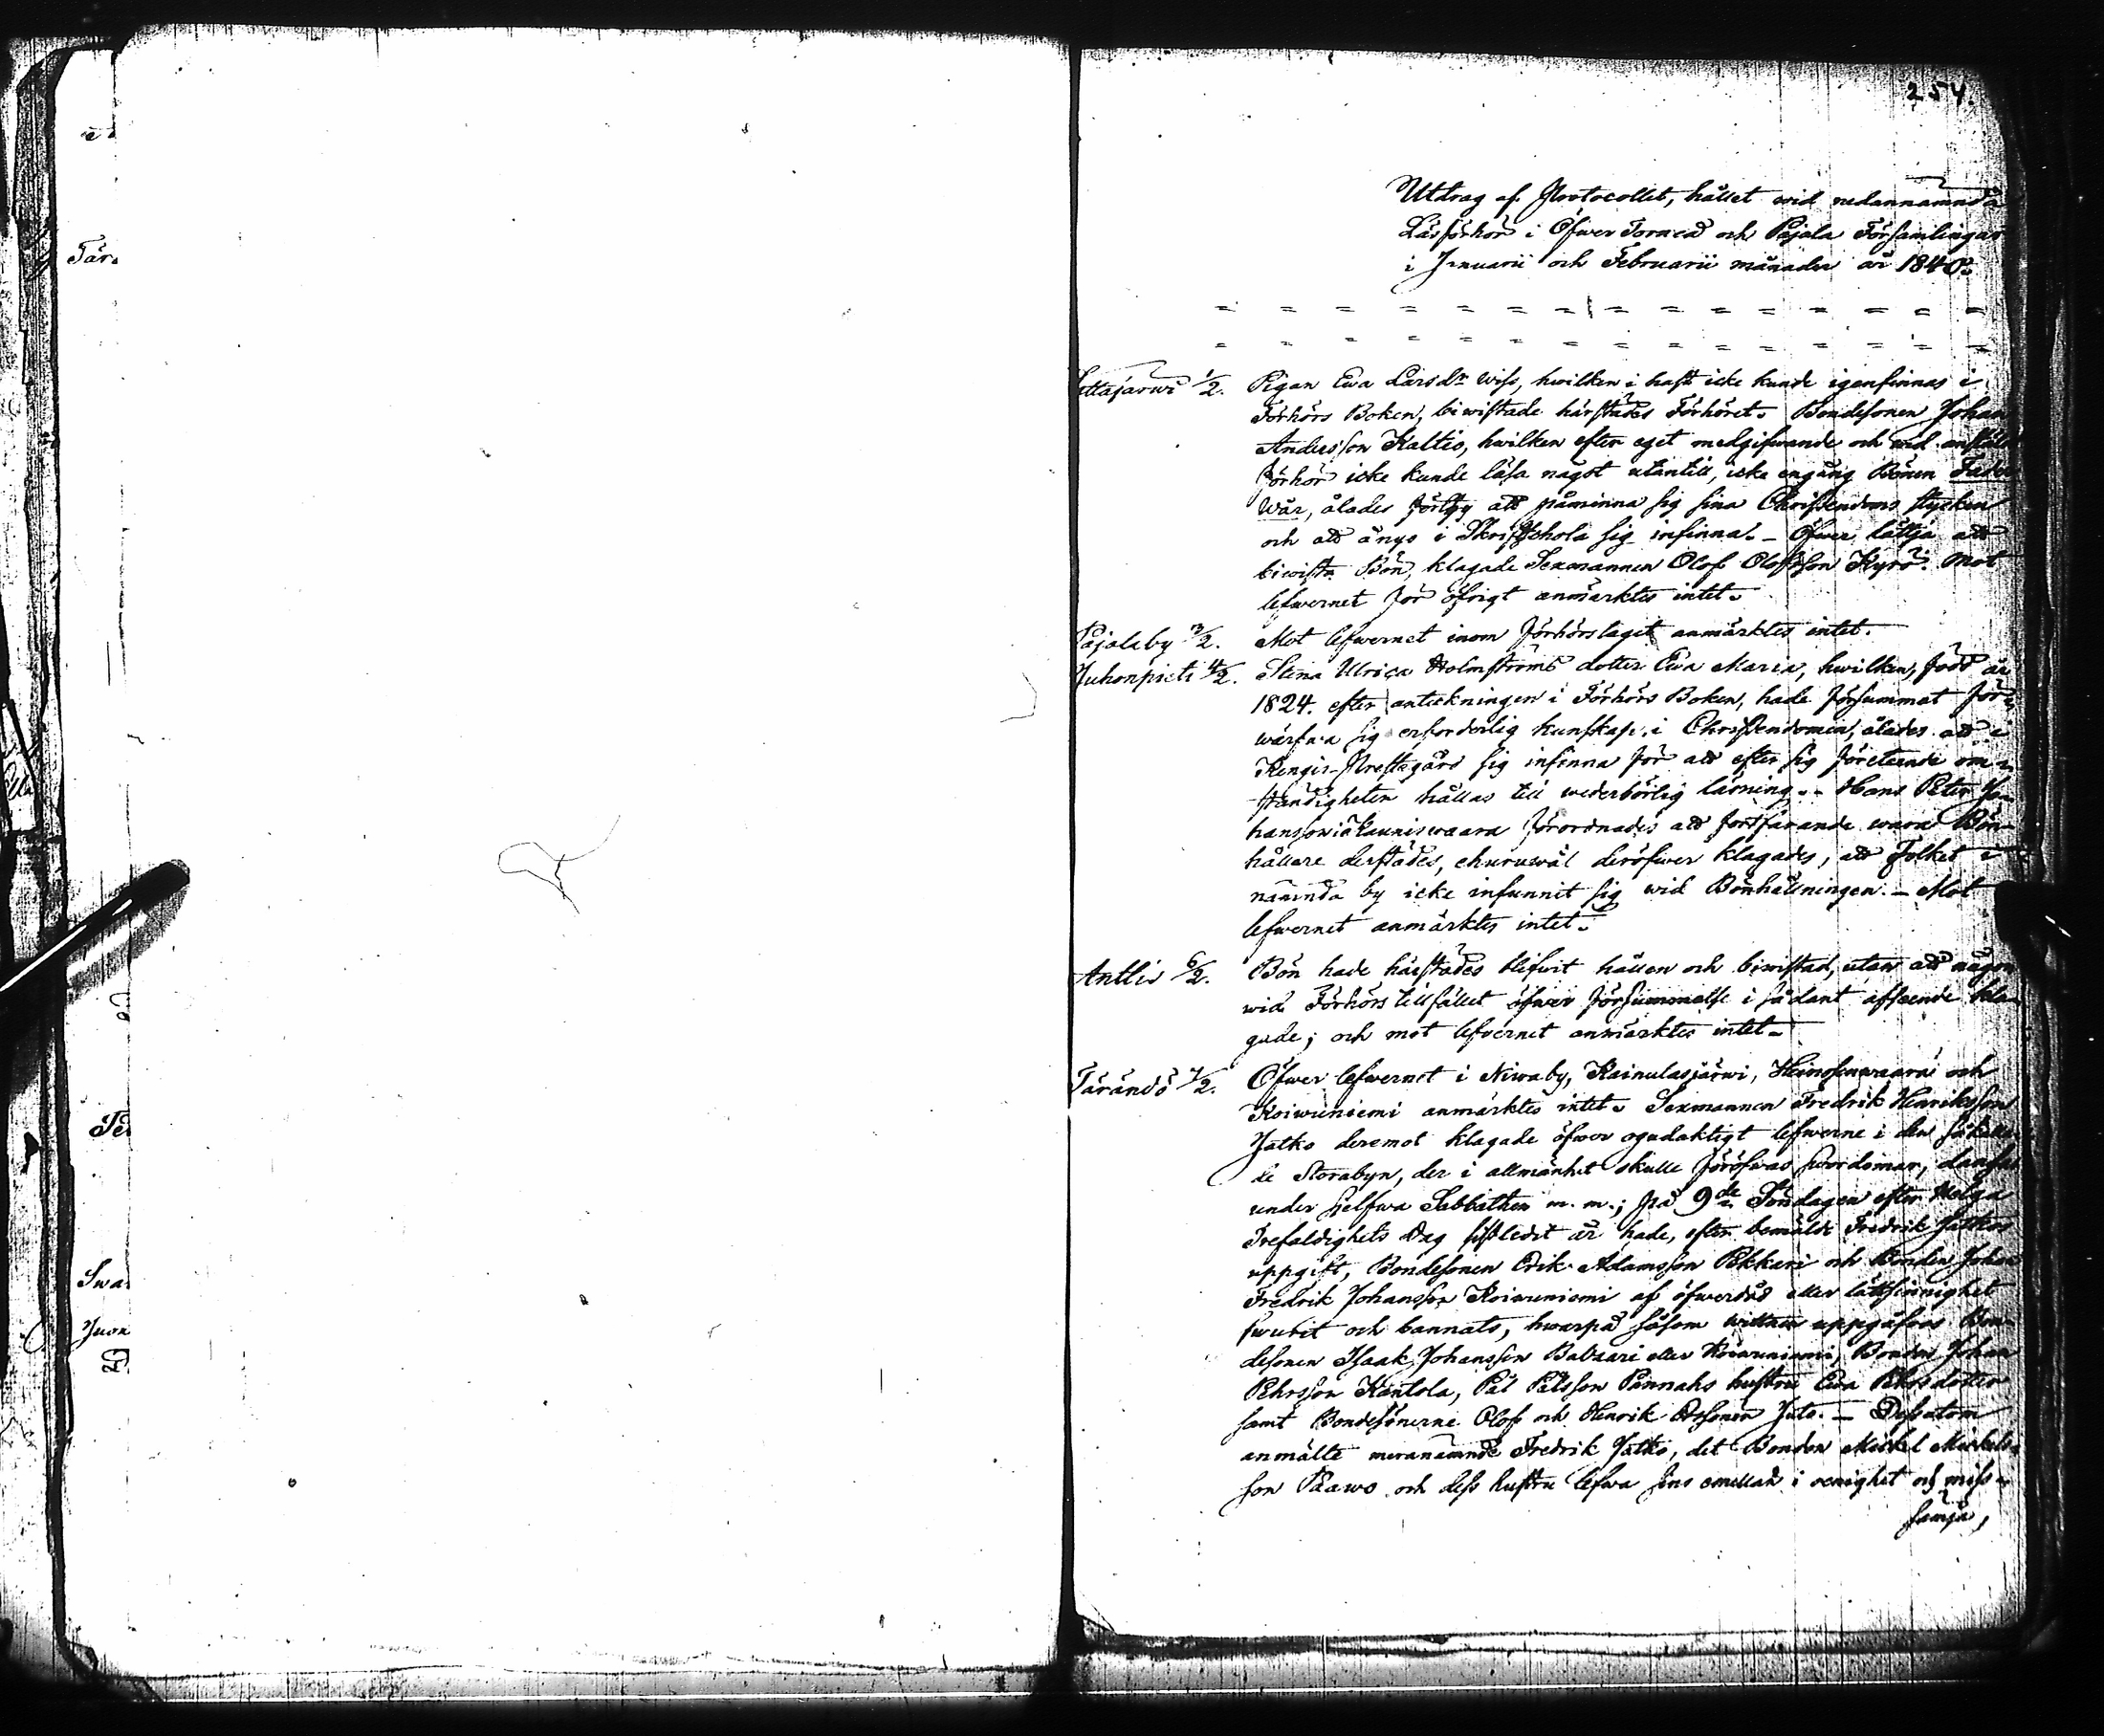 254.
Utdrag af Protocollet, hållet wid nedannämnda
Läsförhör i Öfwer Torneå och Pajala Församlingar
i Januarii och Februarii månader år 1840.
Tär
Pigan Ewa Larsdr Wiss, hwilken i hast icke kunde igenfinnas i
Förhörs Boken, biwistade härstädes Förhöret. Bondesonen Johan
Andersson Kaltio, hwilken efter eget medgifwande och wid anstäldt
förhör icke kunde läsa något utantill, icke engång Bönen Fader
Wår, ålades förthy att påminna sig sina Christendoms stycken
och att ånyo i Skriftschola sig infinna. – Öfwer lättja att
biwista Bön, klagade Sexmannen Olof Olofsson Kyrö. Mot
lefwernet för öfrigt anmärktes intet.
Pajala by 3/2. Mot lefwernet inom förhörslaget anmärktes intet.
Juhonpieti 4/2. Stina Ulrica Holmströms dotter Ewa Maria, hwilken, född år
1824. efter anteckningen i Förhörs Boken, hade försummat för-
wärfwa sig erforderlig kunskap i Christendomen, ålades att i
Kengis Prestegård sig infinna för att efter sig företeende om-
ständigheter hållas till wederbörlig läsning. – Hans Peter Jo-
hansson i Kauniswaara förordnades att fortfarande wara Bön-
hållare derstädes, ehuruwäl deröfwer klagades, att Folket i
nämnda by icke infunnit sig wid Bönhållningen. – Mot
lefwernet anmärktes intet.
Anttis 6/2. Bön hade härstädes blifwit hållen och biwistad, utan att någon
wid Förhörs tillfället öfwer försummelse i sådant afseende kla-
gade; och mot lefwernet anmärktes intet.
Tärändö 7/2. Öfwer lefwernet i Niwaby, Kainulasjärwi, Heinosenwaara och
Koiwuniemi anmärktes intet. Sexmannen Fredrik Henriksson
Jatko deremot klagade öfwer ogudaktigt lefwerne i den så kalla-
de Storabyn, der i allmänhet skulle föröfwas swordomar, dansas
under sjelfwa Sabbathen m. m.; på 9de Söndagen efter Helga
Trefaldighets Dag sistledit år hade, efter bemälde Fredrik Jatkos
uppgift, Bondesonen Erik Adamsson Pekkari och Bonden Johan
Fredrik Johansson Koiwuniemi af öfwerdåd eller lättsinnighet
swurit och bannats, hwarpå såsom wittnen uppgåfwos Bon-
desonen Isaak Johansson eller Koiwuniemi, Bonden Johan
Pehrsson Kantola, Pål Pålsson Pannahs hustru Ewa Pehrsdotter
samt Bondesönerne Olof och Henrik – Dessutom
anmälte meranämnde Fredrik Jatko, det Bonden Mickel Mickels-
son Paawo och dess hustru lefwa sins emellan i oenighet och miss-
sämja,
Swa
Juon